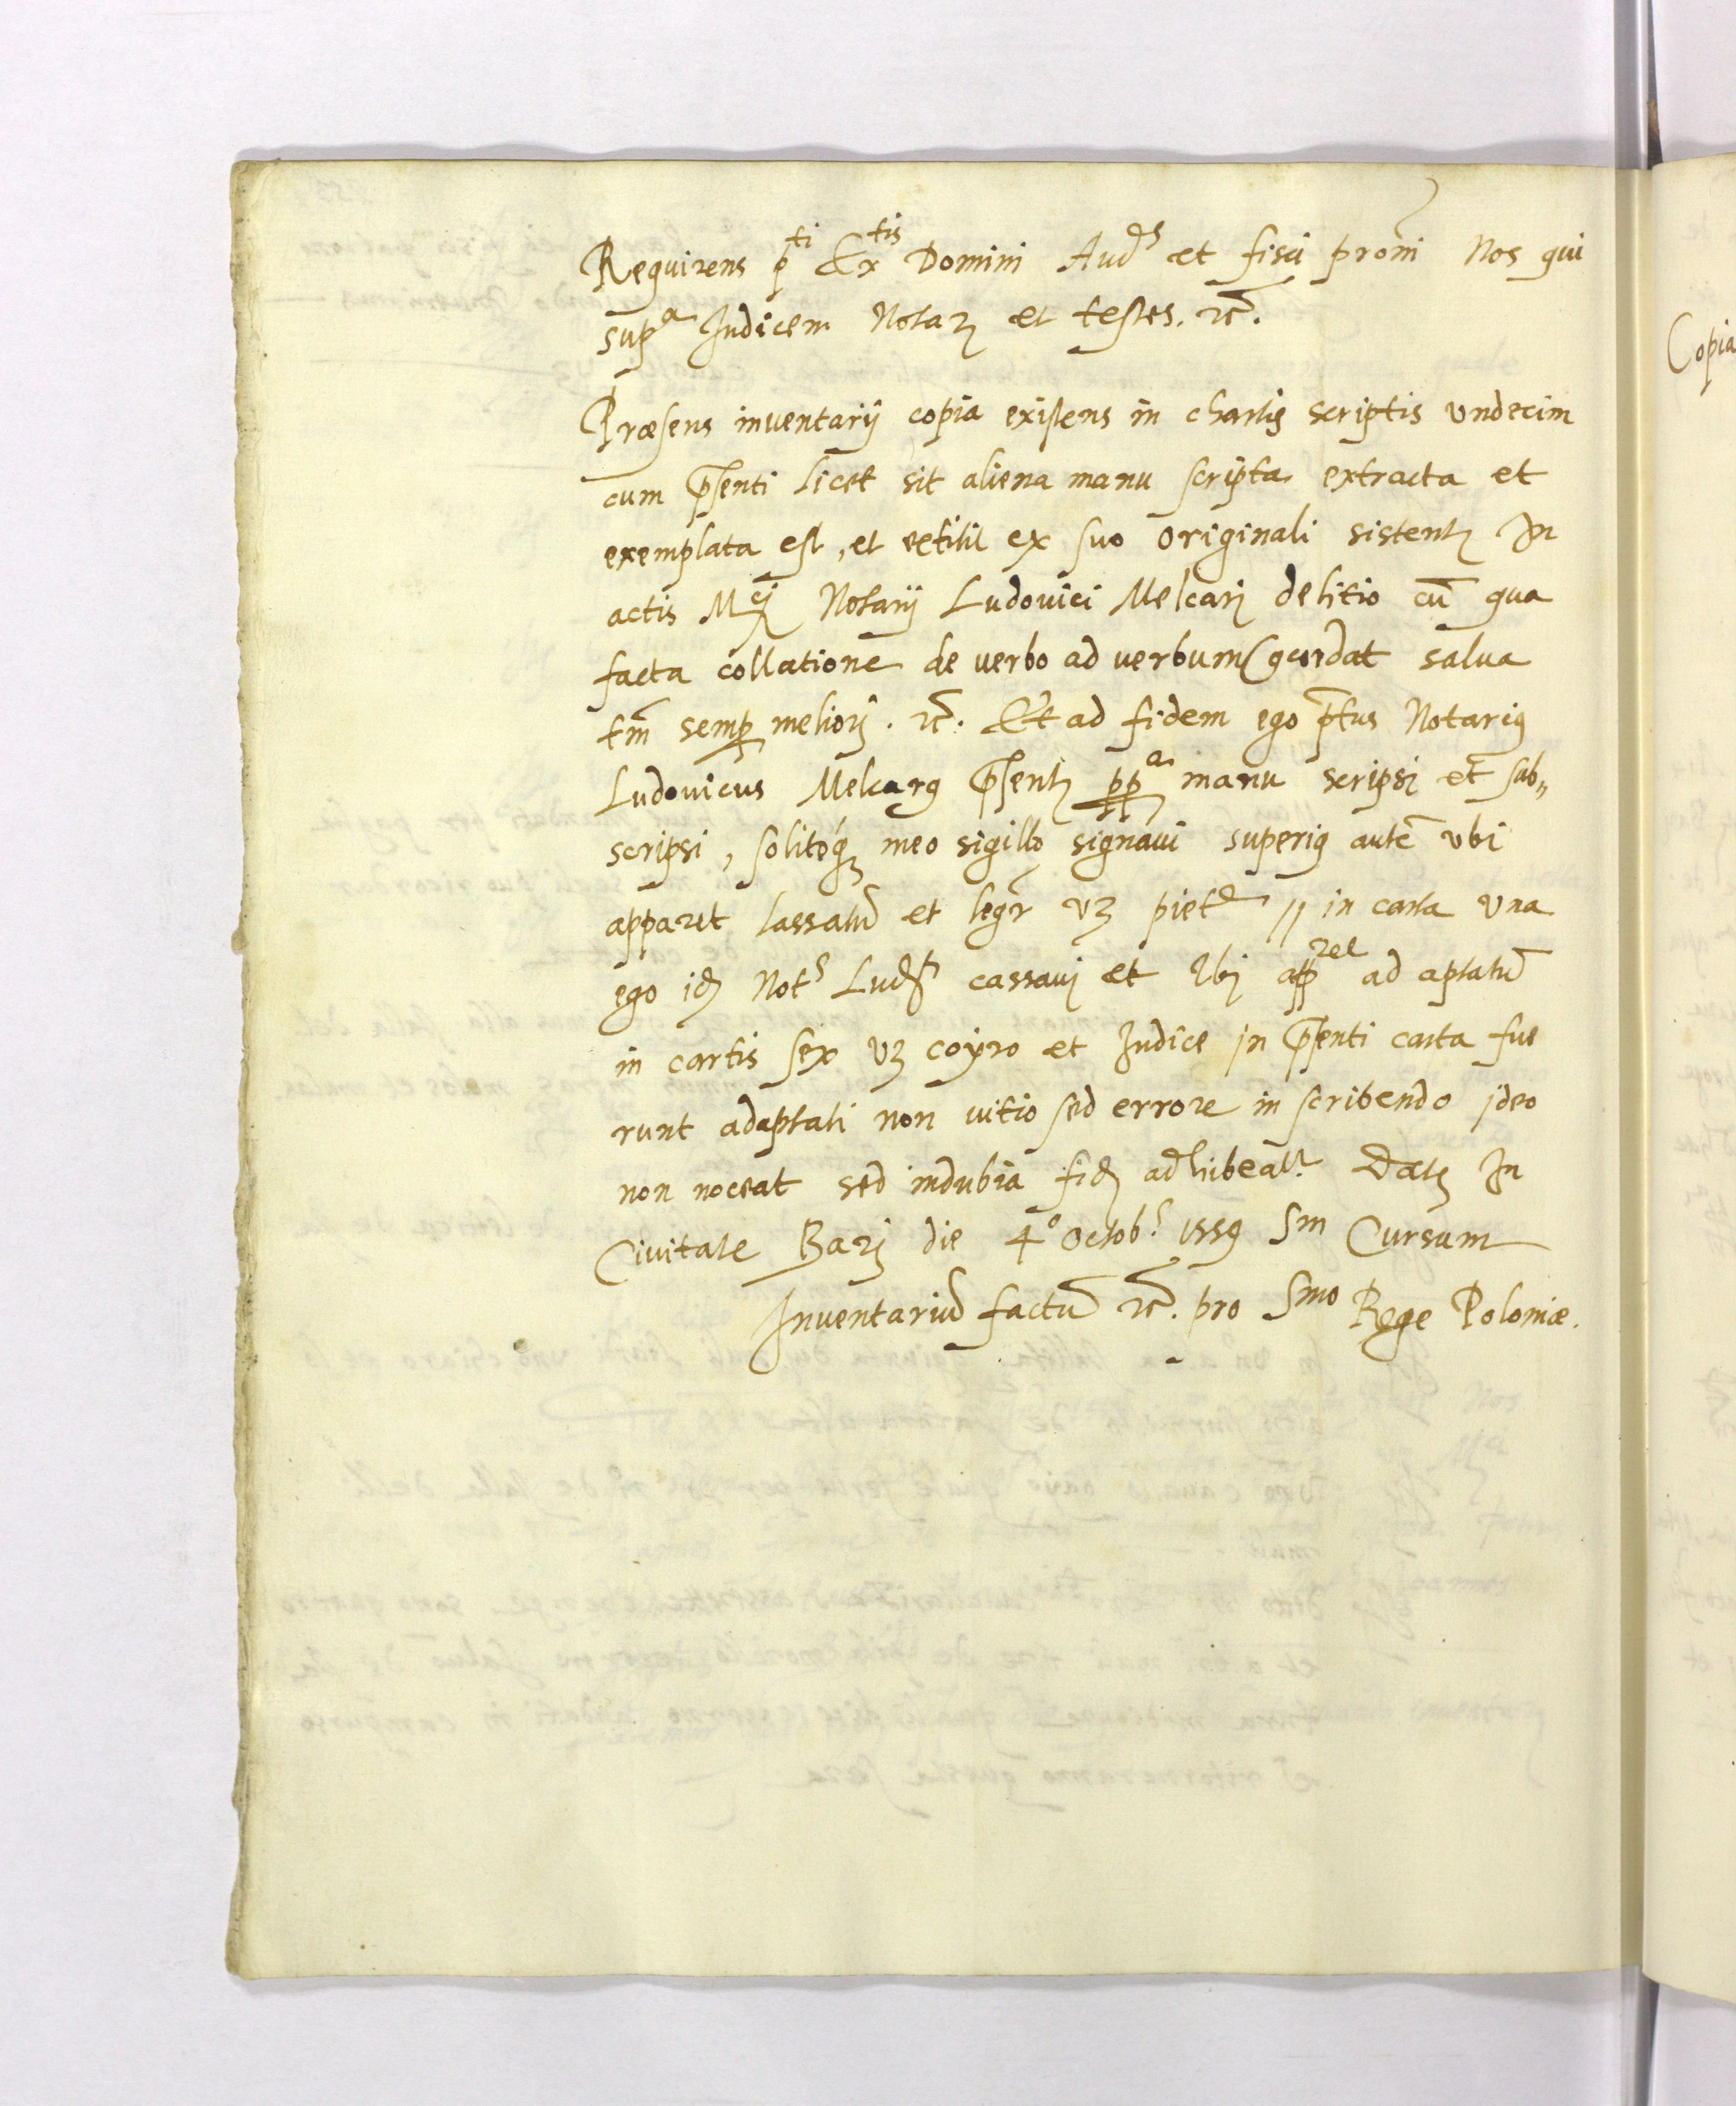 Requirens p^ti Ex^tis Domini Aud^s et fisci proñi Nos qui
sup^a Judicem Notar et testes. rc̃.
Præsens inventarij copia existens in chartis scriptis vndecim
cum p̃senti licet sit aliena manu scripta extracta et
exemplata est, et extitit ex suo originali sistent In
actis M^ci Notarij Ludovici Melcarj delitio cũ qua
facta collatione de verbo ad verbum cõcordat salua
tm̃ semp meliorj. rc̃. Et ad fidem ego p̃tus Notarius
Ludovicus Melcarus p̃sent pp^a manu scripsi et sub„
scripsi, solitoq meo sigillo signaui superius autẽ vbi
apparet lassatũ et legr̃ vz piet^e // in carta vna
ego id Not^s Lud^s cassauj et Ibj app^ret ad aptatũ
in cartis sex vz coyro et Judice jn p̃senti carta fue
runt adaptati non uitio sed errore in scribendo jdeo
non noceat sed indubia fid adhibeat^r Dat In
Ciuitate Barj die 4° Octob^s 1559 Sm Cursum
Inuentariũ factũ rc̃. pro S^mo Rege Poloniæ.
Copia